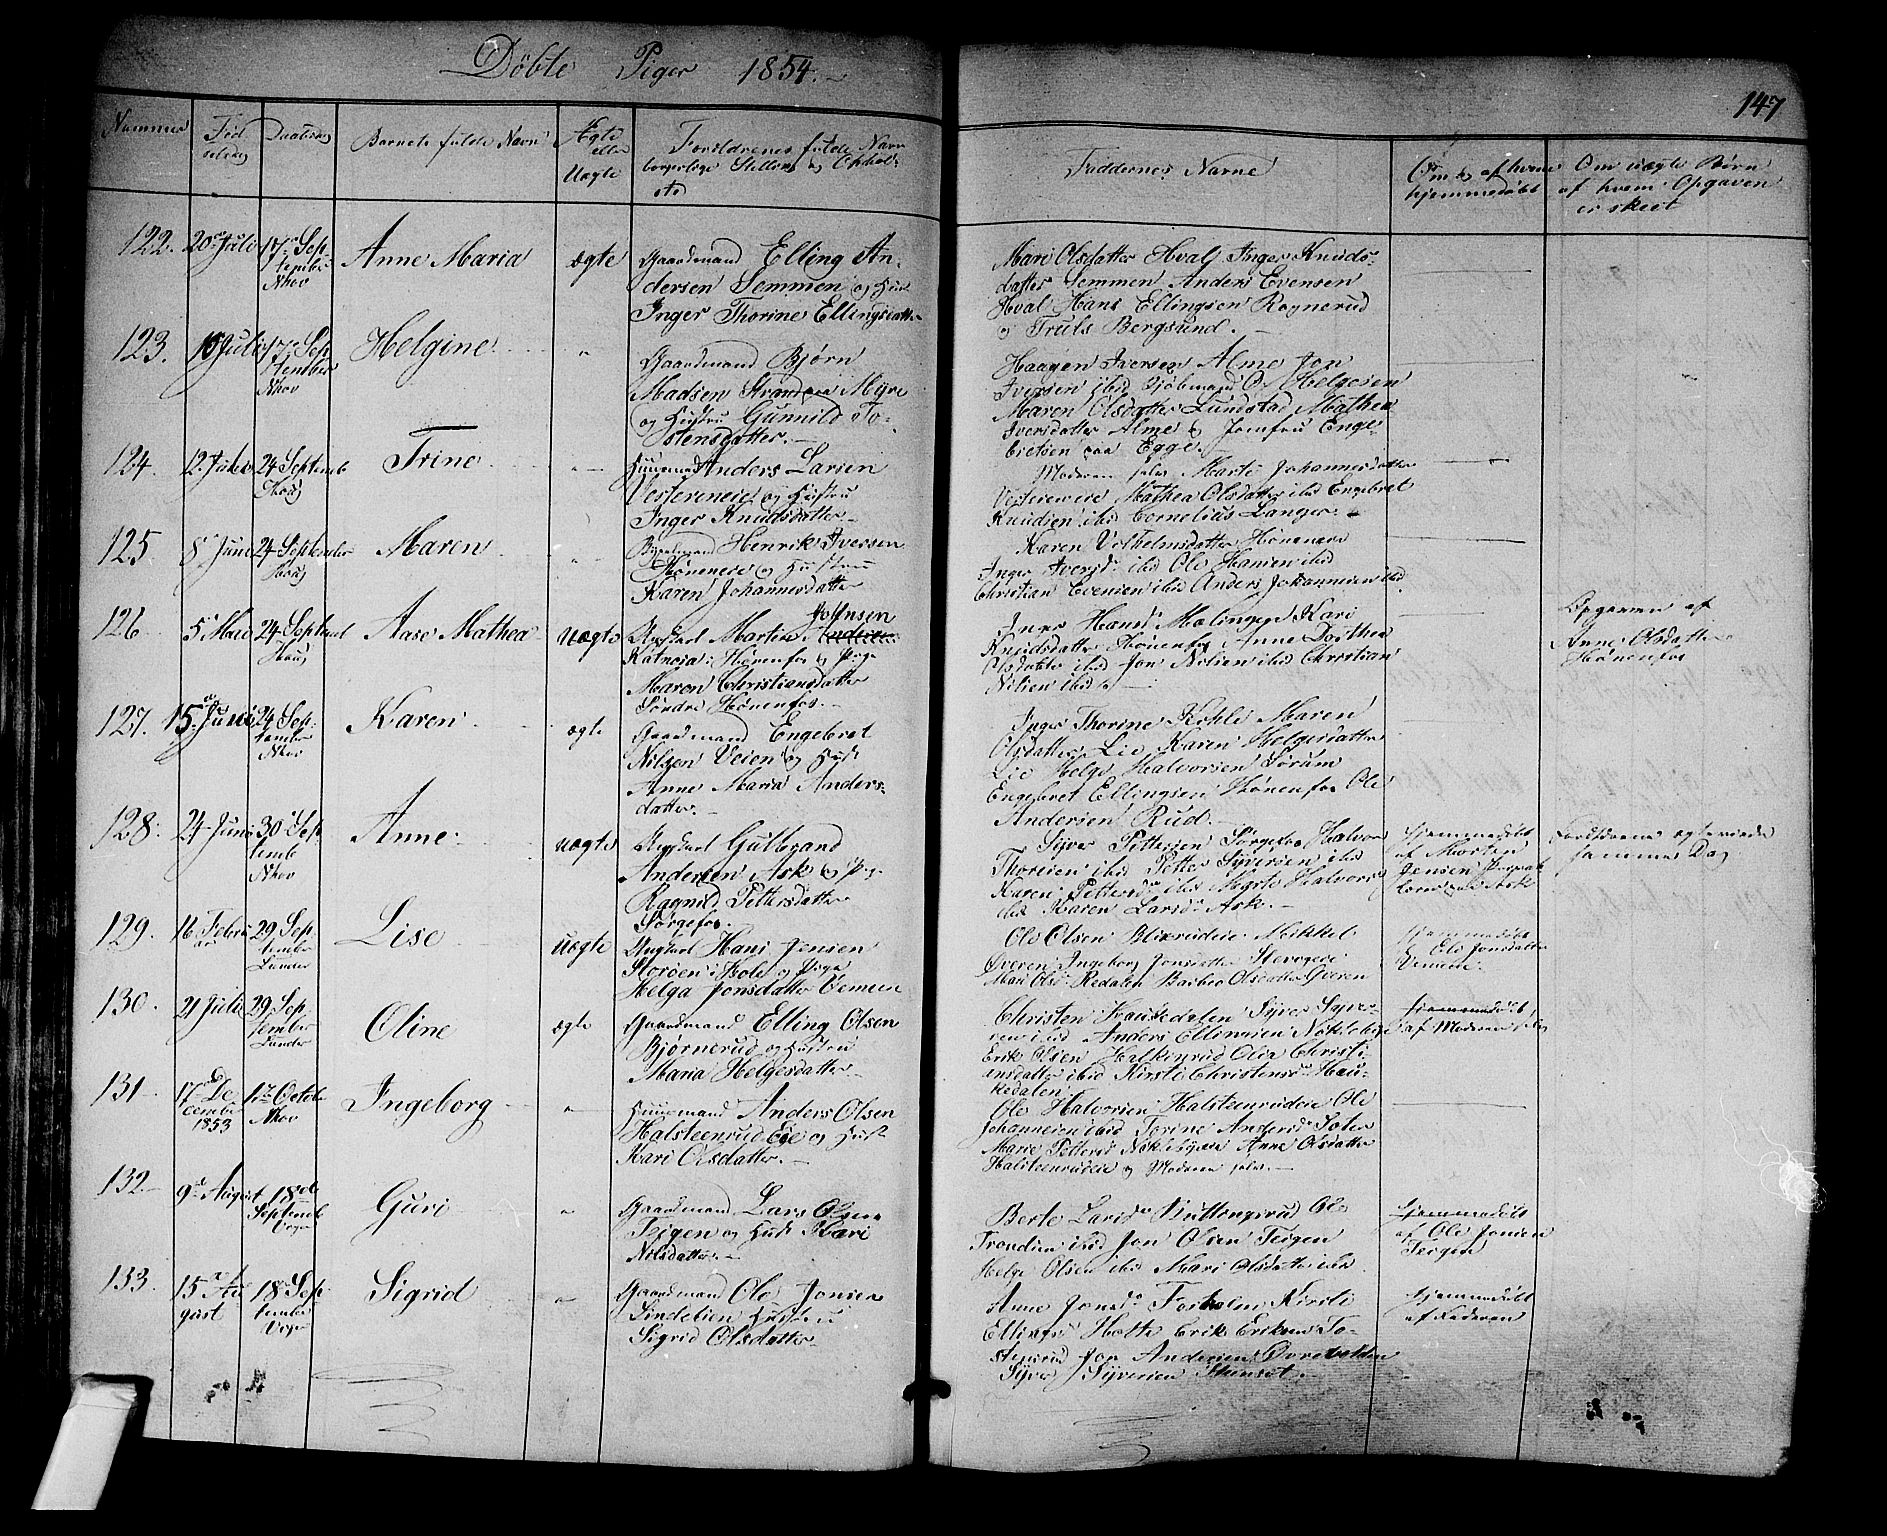 Döbte Piger 1854.
147
Nummer
Fød
selsdag
Daabsdag
Barnets fulde Navn
Ægte
eller
Uægte
Forældrenes fulde Navn
borgerlige Stilling og Ophold
sted
Faddernes Navne
Om og af hvem
hjemmedøbt
Om uægte Børn
af hvem Opgaven
er skeet
122.
20 Juli
17 Sep
tember
Nhov
Anne Maria
ægte
Gaardmand Elling An-
dersen Semmen og Hust
Inger Thorine Ellingsdatter
Mari Olsdatter Hval Inger Knuds-
datter Semmen Anders Evensen
Hval Hans Ellingsen Rognerud
og Truls Bergsund.
123.
Juli
17 Sep
tember
Nhov
Helgine
"
Gaardmand Bjørn
Madsen Strand paa Myre
og Hustru Gunnild To-
stensdatter.
Haagen Iversen Alme Jon
Iversen ibid O. Helgesen
Maren Olsdatter Lundstad Mathea
Iversdatter Alme og Jomfru Enge-
bretsen paa Egge.
124.
12 Juli
24 Septemb
Houg
Trine
"
Huusmand Anders Larsen
Vestereneie og Hustru
Inger Knudsdatter
Moderen selv Marte Johannesdatter
Mathea Olsdatter ibid Engebret
Knudsen ibid Cornelius Langer.
125
8 Juni
24 September
Houg
Maren
"
Henrik Iversen
Høneneie og Hustru
Karen Johannesdatter
Karen Høneneie
Inger Iversd. ibid Ole Hansen ibid
Christian Evensen ibid Anders Johannesen ibid.
126
5 Mars
24 Septemb
Houg
Aase Mathea
uægte
Johnsen
Ungkarl Martin
i Hønenfos og Pige
Maren Christiansdatter
Søndre Hønenfos.
Inger Hansd. Kari
Knudsdatter Hønenfos Anne Dorthea
Olsdatter ibid Jon Nilsen ibid Christian
Nilsen ibid.
Opgaven af
Anne Olsdatter
Hønenfos
127.
15 Juni
24 Sep-
tember
Nhov
Karen
ægte
Gaardmand Engebret
Nilsen Veien og Hust
Anne Maria Anders-
datter.
Inger Thorine Kohli Maren
Olsdatter Lie Karen Helgesdatter
Lie Helge Halvorsen Sørum
Engebret Ellingsen Hønenfos Ole
Andersen Rud.
128.
24 Juni
30 Sep
temb
Nhov
Anne
uægte
Ungkarl Gulbrand
Andersen Ask og Pige
Ragnild Pettersdatter
Sørgefos.
Syver Pettersen Sørgefos Halvor
Thoresen ibid Petter Syversen ibid
Karen Pettersd. ibid Marte Halvorsd
ibid Karen Larsd. Ask.
Hjemmedøbt
af Morten
Jensen
Ask
Forældrene egteviede
samme Dag
129.
16 Febru
ar
29 Sep
tember
Lunder
Lise
uægte
Ungkarl Hans Jensen
Storøen i Hole og Pige
Helga Jonsdatter Vemeen
Ole Olsen Mikkel
Øveren Ingeborg Jonsdatter
Mari Olsd. Redalen Barbro Olsdatter Øveren
Hjemmedøbt
af Ole Jonsdatter
130.
21 Juli
29 Sep
tember
Lunder
Oline
ægte
Gaardmand Elling Olsen
Bjørnerud og Hustru
Maria Helgesdatter
Christen Haukedalen Syver Syver-
sen ibid Anders Ellingsen
Erik Olsen Christi-
ansdatter ibid Kirsti Christensd. Hau-
kedalen
Hjemmedøbt
af Moderen selv
131
17 De
cember
1853
1 Octob
Nhov
Ingeborg
"
Huusmand Anders Olsen
Halsteenrud Eie og Hust
Kari Olsdatter.
Ole Halvorsen Halsteenrudeie Ole
Johannesen ibid Torine Andersd.
Marie Pettersd Anne Olsdatter
Halsteenrudeie og Moderen selv.
132.
9 August
18de
Septemb
Guri
"
Gaardmand Lars Olsen
Teigen og Hust Kari
Nilsdatter.
Berte Larsd. Ole
Trondsen ibid Jon Olsen Teigen
Helge Olsen ibid Mari Olsdatter ibid.
Hjemmedøbt
af Ole Jonsen
Teigen
133
15 Au
gust
18 Sep
tember
Sigrid
"
Gaardmand Ole Jonsen
Lindelien Hustru
Sigrid Olsdatter
Anne Jonsd. Kirsti
Ellingsd. Erik Eriksen To-
stensrud Jon Andersen
Syver Syversen
Hjemmedøbt
af Faderen